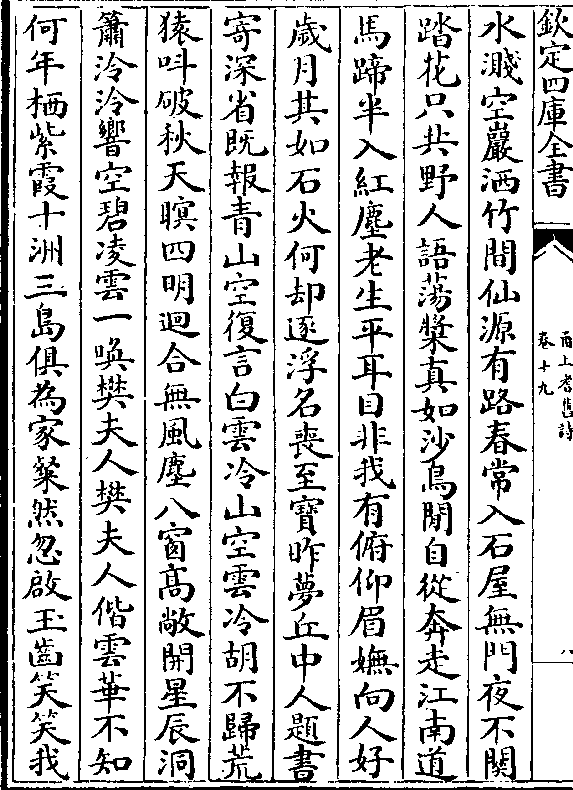 欽定四庫全書
甬上耆舊詩
卷十九
八
水濺空巖洒竹間仙源有路春常入石屋無門夜不関
踏花只共野人語蕩槳真如沙鳥閒自從奔走江南道
馬蹄半入紅塵老生平耳目非我有俯仰眉嫵向人好
歲月其如石火何却逐浮名喪至寶昨夢丘中人題書
寄深省既報青山空復言白雲冷山空雲冷胡不歸荒
猿呌破秋天暝四明迴合無風塵八窗高敞開星辰洞
簫泠泠響空碧凌雲一喚樊夫人樊夫人偕雲華不知
何年栖紫霞十洲三島俱為家粲然忽啟玉齒笑笑我